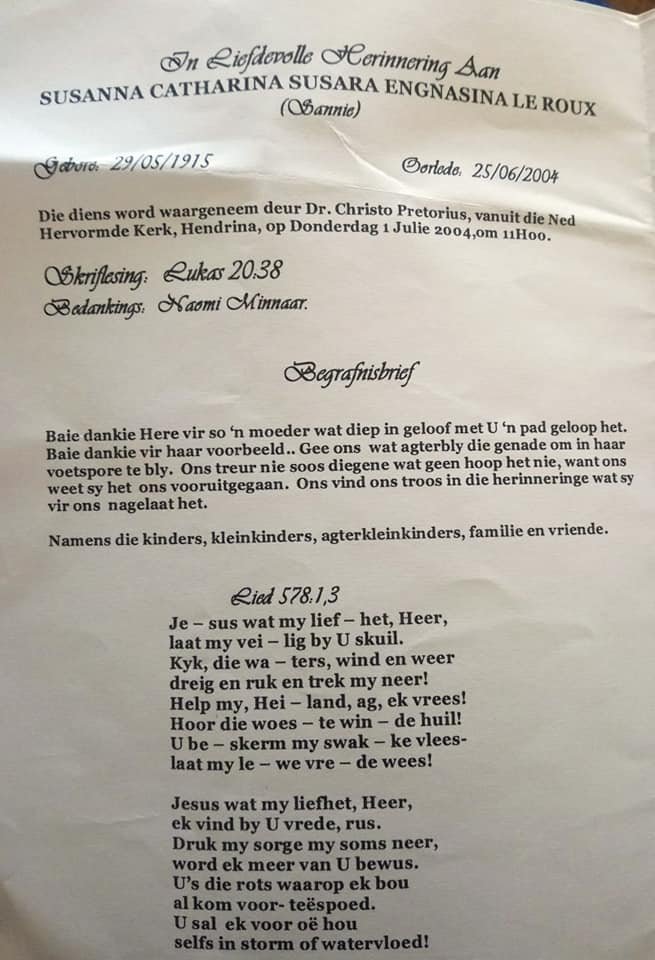 In Liefdevolle Herinnering Aan
SUSANNA CATHARINA SUSARA ENGNASINA LE ROUX
(Sannie)
Gebore: 29/05/1915 Oorlede: 25/06/2004
Die diens word waargeneem deur Dr. Christo Pretorius, vanuit die Ned
Hervormde Kerk, Hendrina, op Donderdag 1 Julie 2004,om 11H00.
Skriflesing: Lukas 20:38
Bedankings: Naomi Minnaar.
Begrafnisbrief
Baie dankie Here vir so 'n moeder wat diep in geloof met U 'n pad geloop het.
Baie dankie vir haar voorbeeld.. Gee ons wat agterbly die genade om in haar
voetspore te bly. Ons treur nie soos diegene wat geen hoop het nie, want ons
weet sy het ons vooruitgegaan. Ons vind ons troos in die herinneringe wat sy
vir ons nagelaat het.
Namens die kinders, kleinkinders, agterkleinkinders, familie en vriende.
Lied 578:1,3
Je – sus wat my lief – het, Heer,
laat my vei – lig by U skuil.
Kyk, die wa – ters, wind en weer
dreig en ruk en trek my neer!
Help my, Hei – land, ag, ek vrees!
Hoor die woes – te win – de huil!
U be – skerm my swak – ke vlees-
laat my le – we vre – de wees!
Jesus wat my liefhet, Heer,
ek vind by U vrede, rus.
Druk my sorge my soms neer,
word ek meer van U bewus.
U's die rots waarop ek bou
al kom voor- teëspoed.
U sal ek voor oë hou
selfs in storm of watervloed!